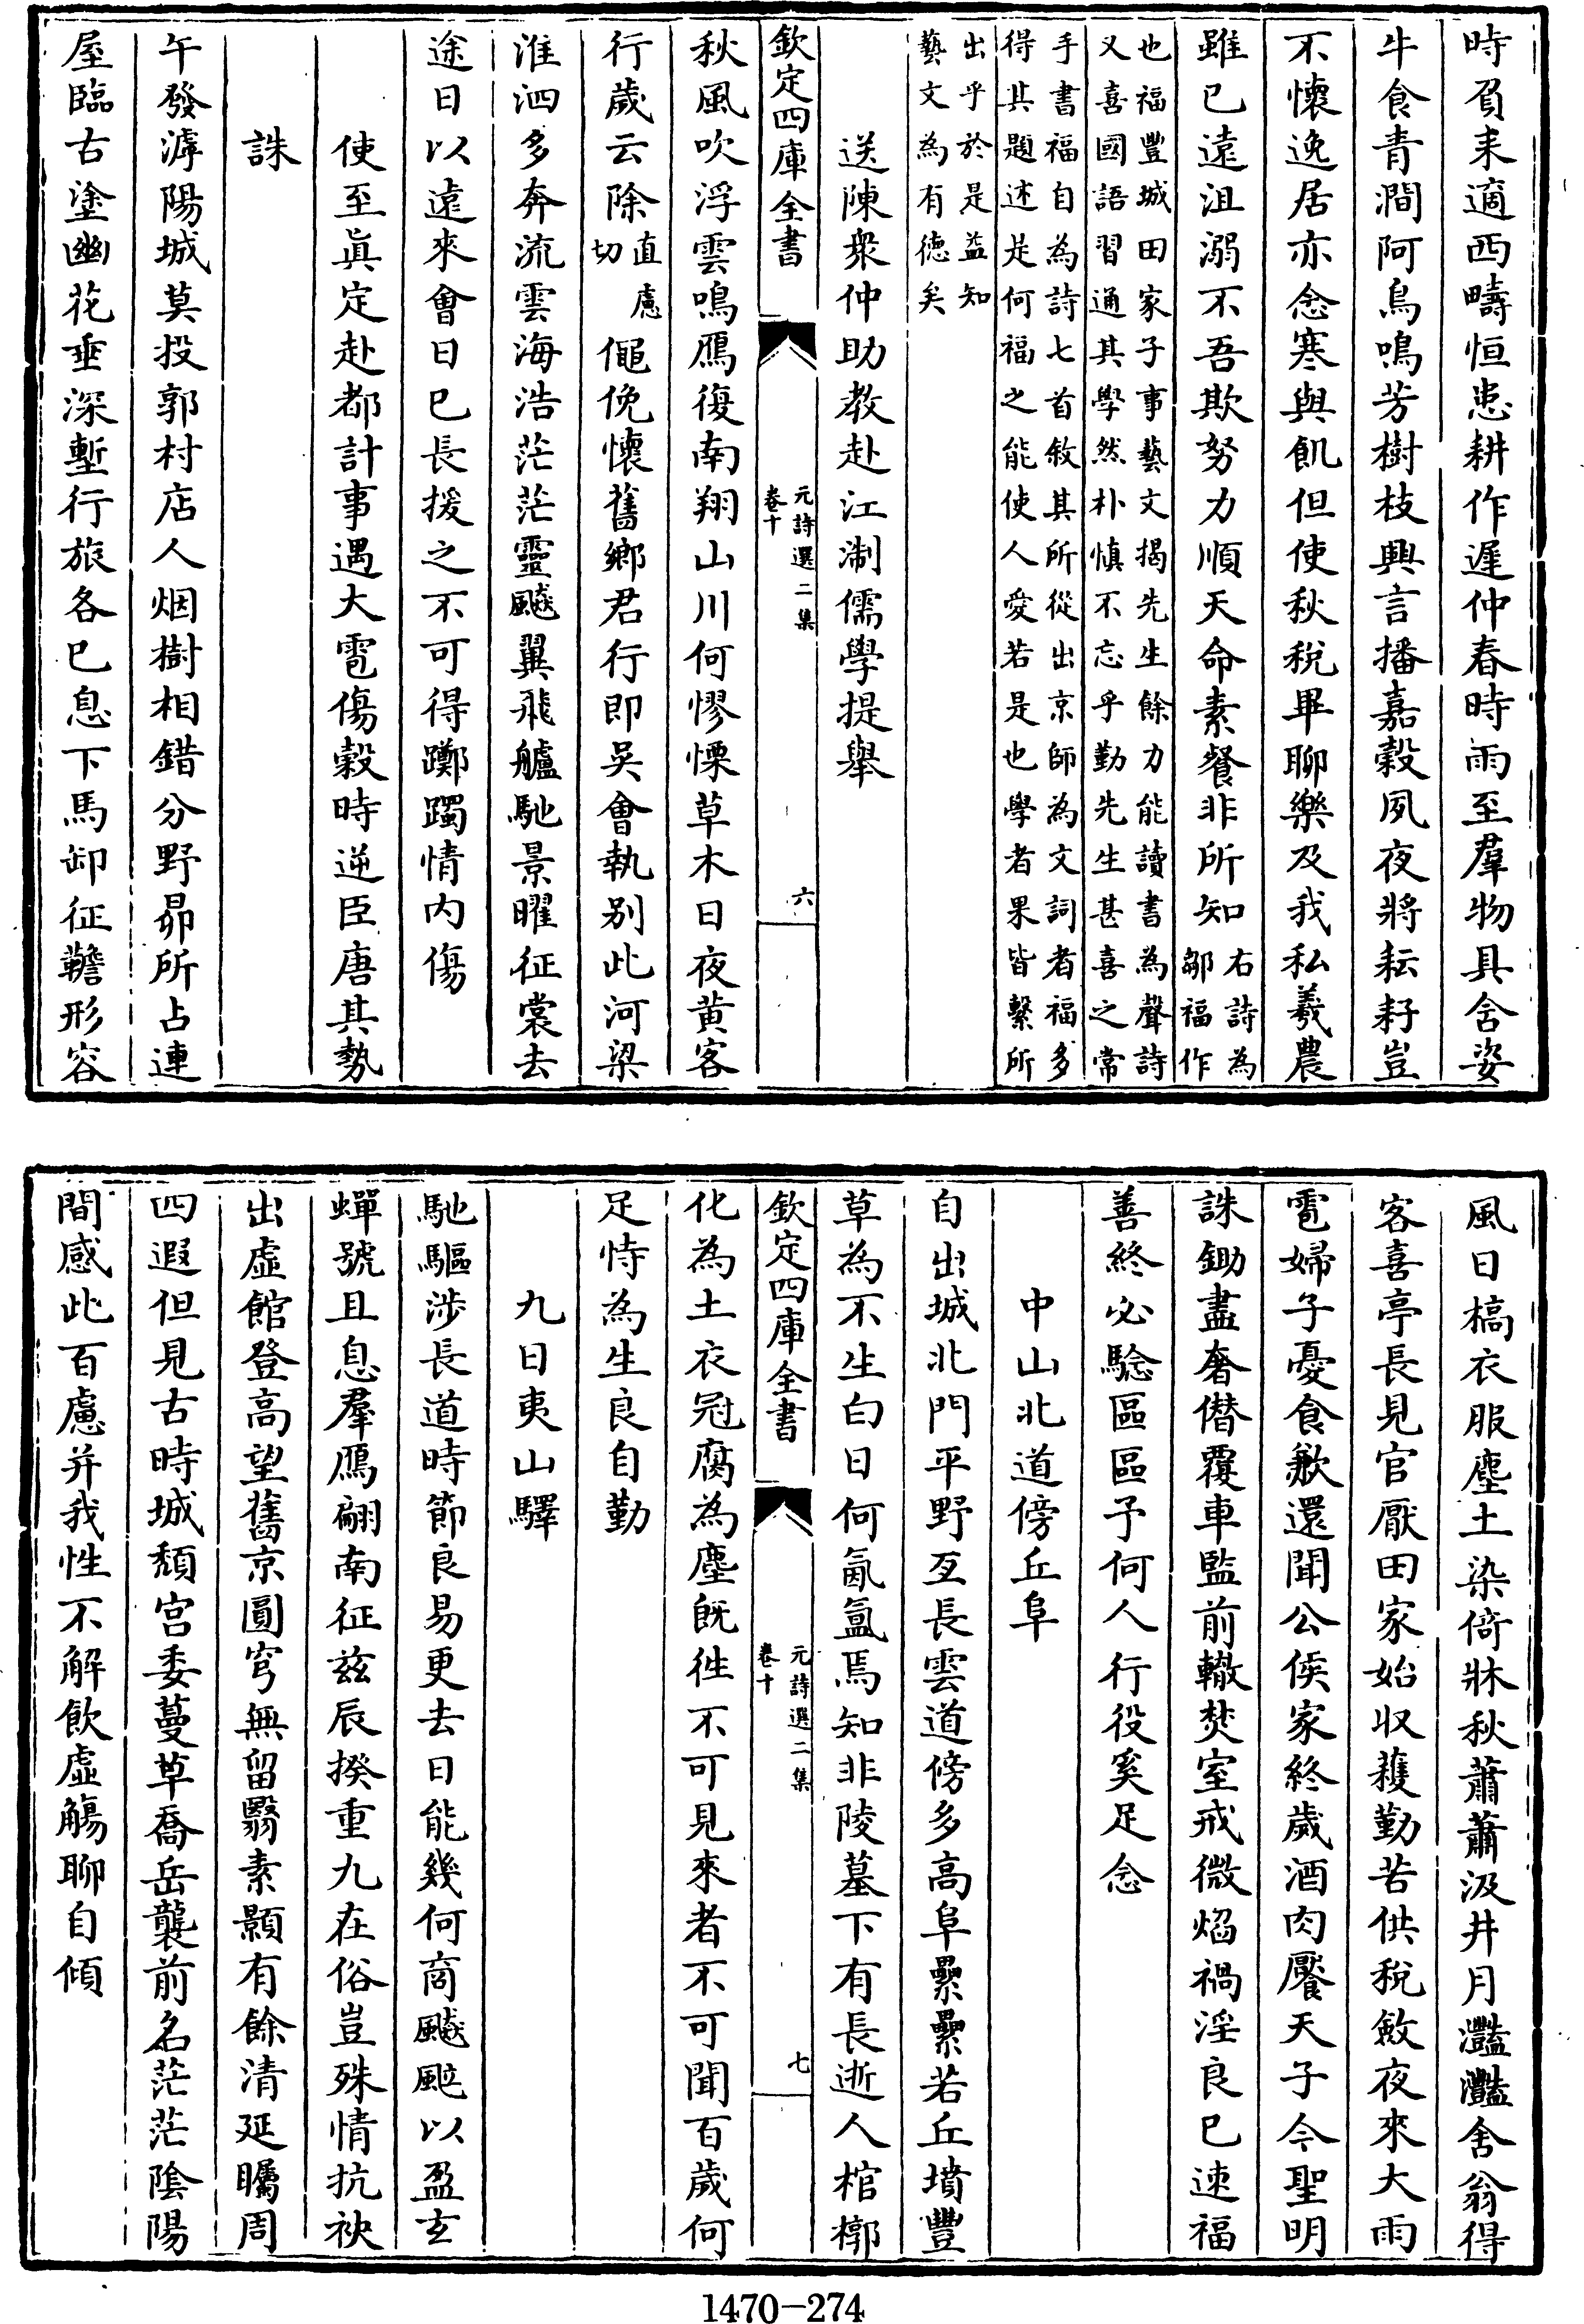 時負耒適西疇恒患耕作遲仲春時雨至羣物具含姿
牛食青澗阿鳥鳴芳樹枝興言播嘉穀夙夜將耘耔豈
不懷逸居亦念寒與飢但使秋稅畢聊樂及我私羲農
雖已遠沮溺不吾欺努力順天命素餐非所知右詩為
鄒福作
也福豐城田家子事藝文揭先生餘力能讀書為聲詩
又喜國語習通其學然朴慎不忘乎勤先生甚喜之常
手書福自為詩七首敘其所從出京師為文詞者福多
得其題述是何福之能使人愛若是也學者果皆繫所
出乎於是益知
藝文為有德矣
送陳衆仲助教赴江淛儒學提舉
欽定四庫全書
元詩選二集
卷十
六
秋風吹浮雲鳴鴈復南翔山川何憀慄草木日夜黄客
行歲云除直慮
切僶俛懷舊鄉君行即吳會執别此河梁
淮泗多奔流雲海浩茫茫靈飈翼飛艫馳景曜征裳去
途日以遠來會日已長援之不可得躑躅情内傷
使至眞定赴都計事遇大雹傷穀時逆臣唐其勢
誅
午發滹陽城莫投郭村店人烟樹相錯分野昴所占連
屋臨古塗幽花垂深塹行旅各已息下馬卸征韂形容
風日槁衣服塵土染倚牀秋蕭蕭汲井月灩灩舍翁得
客喜亭長見官厭田家始収穫勤苦供税斂夜來大雨
雹婦子憂食歉還聞公侯家終歲酒肉饜天子今聖明
誅鋤盡奢僭覆車監前轍焚室戒微焰禍淫良已速福
善終必驗區區予何人行役奚足念
中山北道傍丘阜
自出城北門平野亙長雲道傍多高阜纍纍若丘墳豐
草為不生白日何氤氲焉知非陵墓下有長逝人棺槨
欽定四庫全書
元詩選二集
卷十
七
化為土衣冠腐為塵既徃不可見來者不可聞百歲何
足恃為生良自勤
九日夷山驛
馳驅涉長道時節良易更去日能幾何商飈颭以盈玄
蟬號且息羣鴈翩南征兹辰揆重九在俗豈殊情抗袂
出虛館登高望舊京圓穹無留翳素顥有餘清延矚周
四遐但見古時城頹宫委蔓草喬岳襲前名茫茫隂陽
間感此百慮并我性不解飲虛觴聊自傾
1470-274